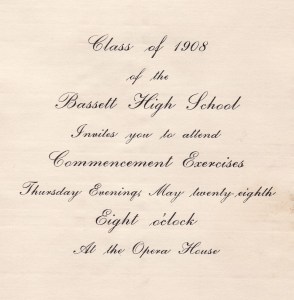 Class of 1908
of the
Bassett High School
Invites you to attend
Commencement Exercises
Thursday Evening, May twenty-eighth
Eight o'clock
At the Opera House